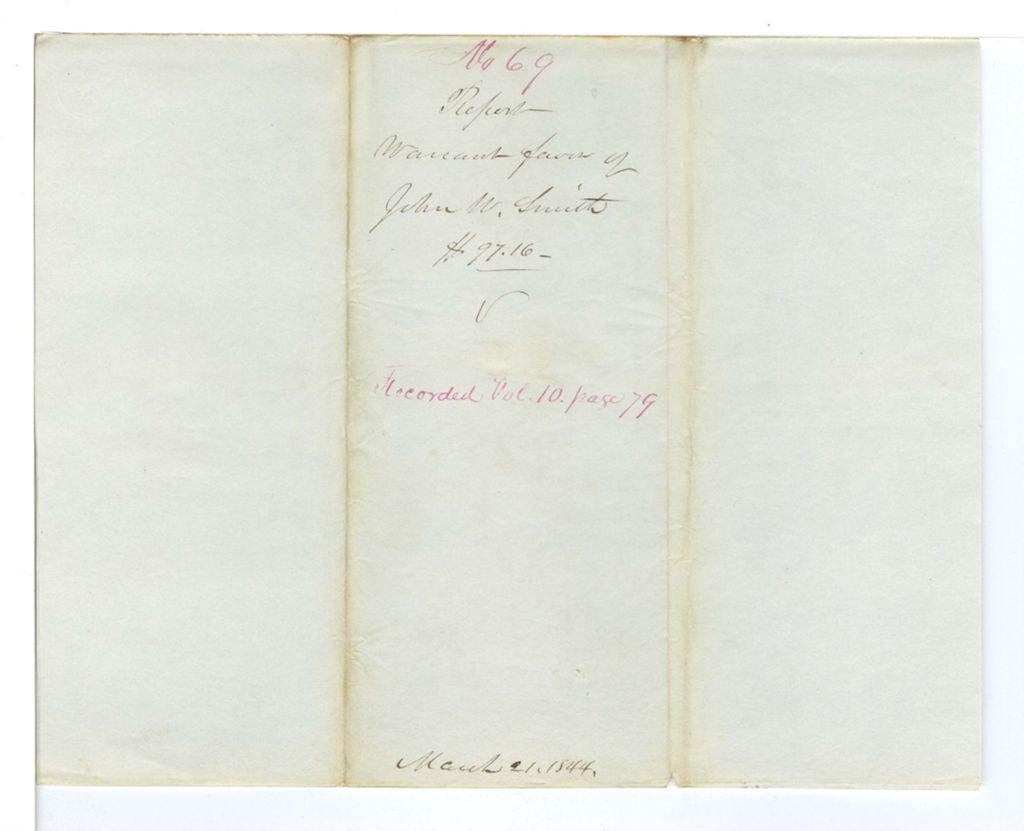 No 69
Report
Warrant favor of
John W. Smith
$ 97.16 -
Recorded Vol. 10. page 79
March 21. 1844.